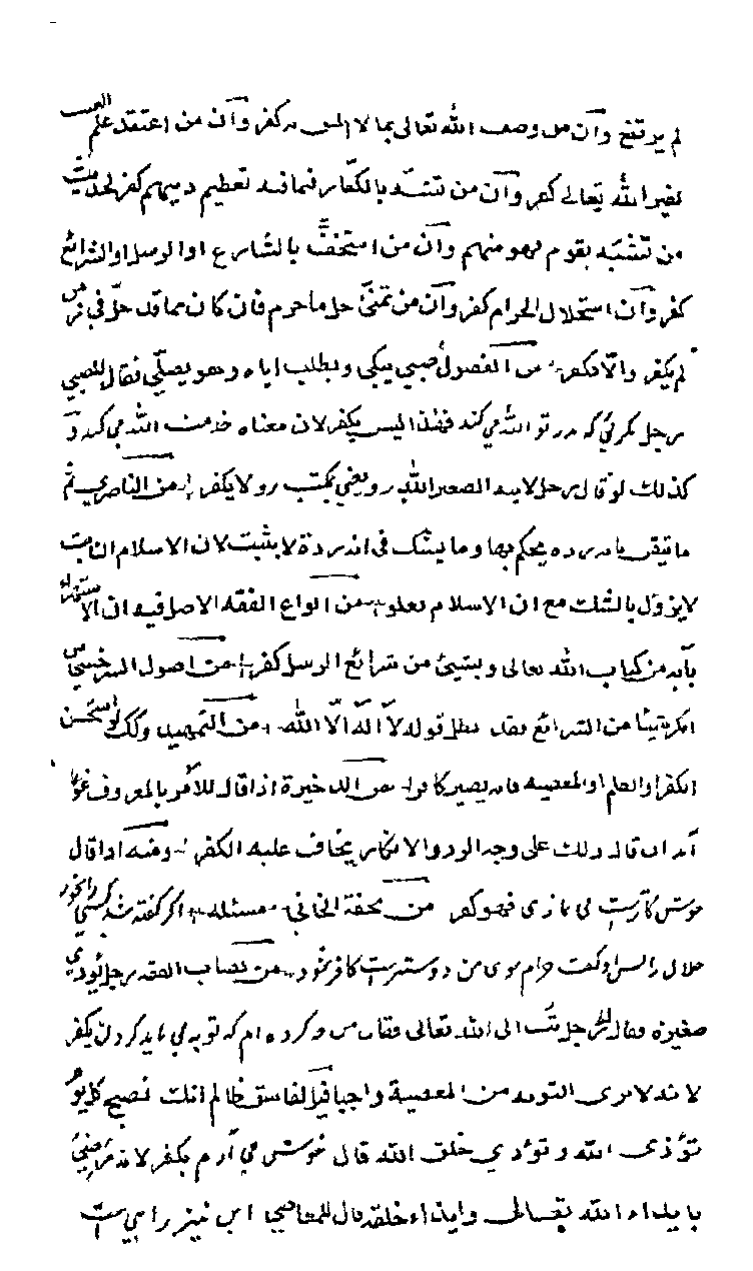 لم يرتفع وآن من وصف الله تعالى بما لا يليق به كفر وآن من اعتقد علم الغيب
لغير الله تعالى كفر وآن من تشبه بالكفار فيما فيه تعظيم دينهم كفر لحديث
من تشبه بقوم فهو منهم وآن من استخف بالشارع او الرسل او الشرائع
كفر وآن استحلال الحرام كفر وآن من تمنى حل ما حرم فان كان مما قد حل في
لم يكفر والا فكفر من الفصول صبي يبكي ويطلب اباه وهو يصلي فقال للصبي
رجل مكري كه پدر تو الله مي كند فهذا ليس بكفر لان معناه خدمت الله مي كند و
كذلك لو قال رجل لابيه الصغير الله رو يعني بمكتب رو لا يكفر من الناصري ثم
ما تيقن بانه ردة يحكم بها وما يشك في انه ردة لا يثبت لان الاسلام الثابت
لا يزول بالشك مع ان الاسلام يعلو من انواع الفقه الاصل فيه ان الاستهزاء
بآية من كتاب الله تعالى وبشيئ من شرائع الرسل كفر من اصول السرخسي من
انكر شيئا من الشرائع فقد بطل قوله لا اله الا الله من التمهيد وكك لو استحسن
الكفر او الظلم او المعصية فانه يصير كافرا من الذخيرة اذا قال للآمر بالمعروف غوغا
آمد ان قال ذلك على وجه الرد والانكار يخاف عليه الكفر ومنه اذا قال
خوش كاريست بي نمازي فهو كفر من تحفة الخاني مسئله اكر كفته شد كسي را بخور
حلال را پس او كفت حرام سوى من دوسترست كافر شود من نصاب الفقه رجل يؤدي
صغيرة وقال لرجل تب الى الله تعالى فقال من چه كرده ام كه توبه مي بايد كردن يكفر
لانه لا يرى التوبة من المعصية واجبا قيل لفاسق ظالم انك تصبح كل يوم
تؤذي الله وتؤذي خلق الله قال خوش مي آرم يكفر لانه رضي
بايذاء الله تعالى وايذاء خلقه قال للمعاصي اين نيز راهي ست